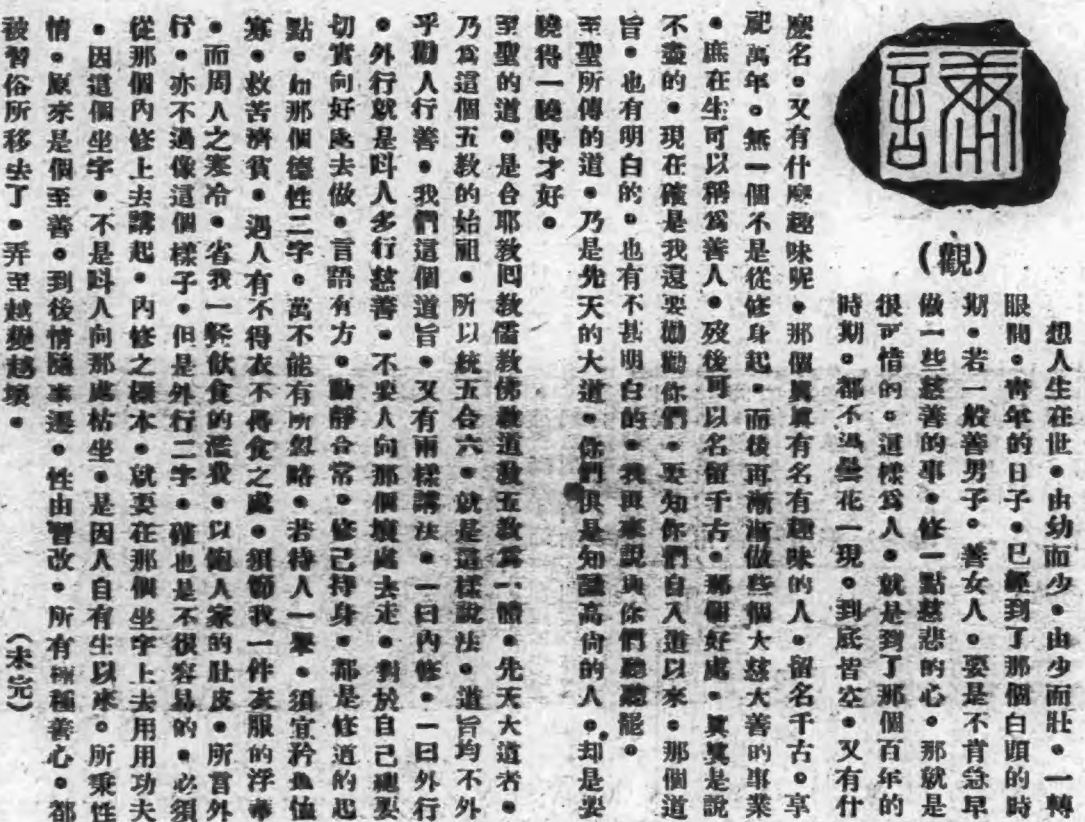 講
（觀）
想人生在世。由幼而少。由少而壯。一轉
眼間。靑年的日子。已經到了那個白頭的時
期。若一般善男子。善女人。要是不肯急早
做一些慈善的事。修一點慈悲的心。那就是
很可惜的。這樣爲人。就是到了那個百年的
時期。都不過曇花一現。到底皆空。又有什
麽名。又有什麽趣味呢。那個眞眞有名有趣味的人。留名千古。享
祀萬年。無一個不是從修身起。而後再漸漸做些個大慈大善的事業
。庶在生可以稱爲善人。歿後可以名留千古。那個好處。眞眞是說
不盡的。現在確是我還要勸勸你們。要知你們自入道以來。那個道
旨。也有明白的。也有不甚明白的。我再來說與你們聽聽罷。
至聖所傳的道。乃是先天的大道。你們俱是知識高尙的人。却是要
曉得一曉得才好。
至聖的道。是合耶敎回敎儒敎佛敎道敎五敎爲一體。先天大道者。
乃爲這個五敎的始祖。所以統五合六。就是這樣說法。道旨均不外
乎勸人行善。我們這個道旨。又有兩樣講法。一曰內修。一曰外行
。外行就是叫人多行慈善。不要人向那個壞處去走。對於自己總要
切實向好處去做。言語有方。動靜合常。修己持身。都是修道的起
點。如那個德性二字。萬不能有所忽略。若待人一舉。須宜矜孤恤
寡。救苦濟貧。遇人有不得衣不得食之處。須節我一件衣服的浮華
。而周人之寒冷。省我一餐飮食的濫費。以飽人家的肚皮。所言外
行。亦不過像這個樣子。但是外行二字。確也是不很容易的。必須
從那個內修上去講起。內修之標本。就要在那個坐字上去用用功夫
。因這個坐字。不是叫人向那處枯坐。是因人自有生以來。所秉性
情。原來是個至善。到後情隨事遷。性由習改。所有種種善心。都
被習俗所移去了。弄至越變越壞。
（未完）